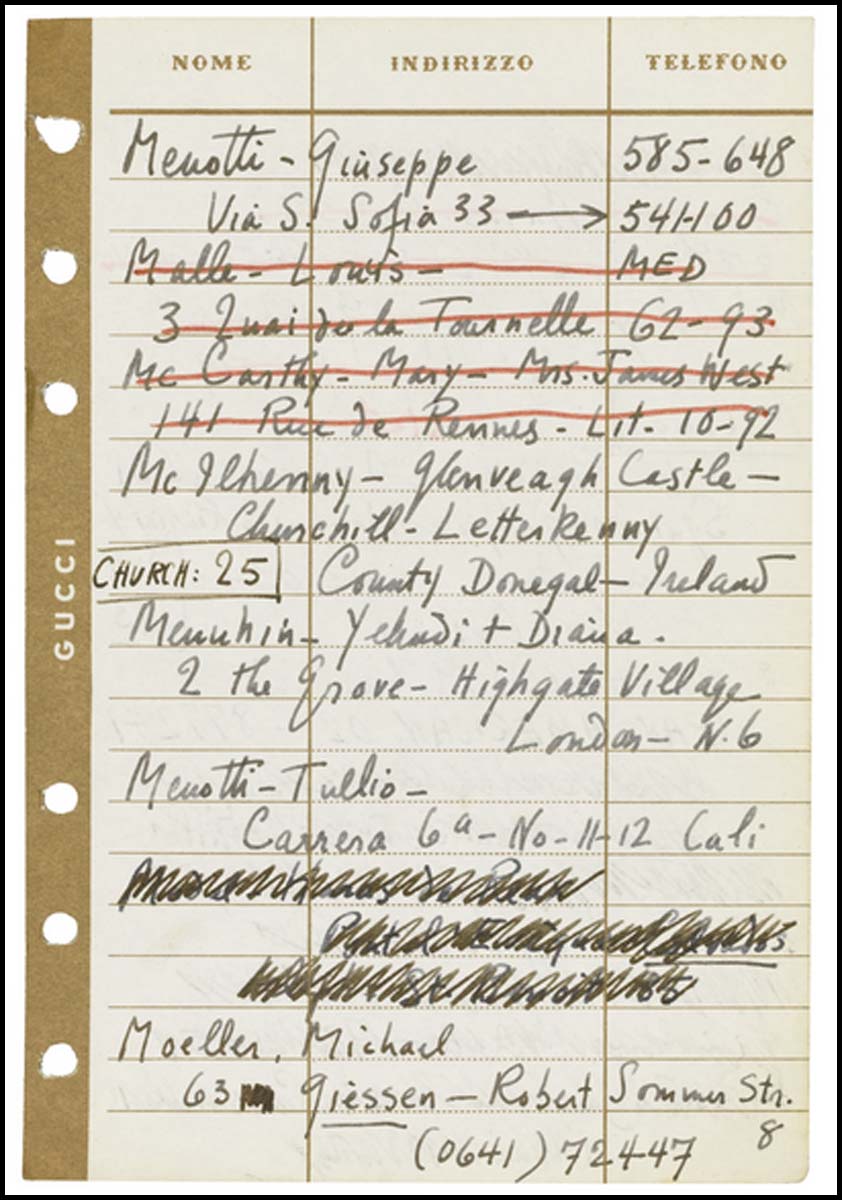 NOME INDIRIZZO TELEFONO
Menotti - Giuseppe 585-648
Via S. Sofia 33 → 541-100
Malle - Louis - MED
3 Quai de la Tournelle 62-93
Mc Carthy - Mary - Mrs. James West
141 Rue de Rennes - Lit - 10-92
Mc Ilhenny - Glenveagh Castle -
Churchill - Letterkenny
CHURCH: 25 County Donegal - Ireland
GUCCI
Menuhin - Yehudi + Diana.
2 the Grove - Highgate Village
London - N.6
Menotti - Tullio -
Carrera 6a - No - 11-12 Cali
Moeller, Michael
63 Giessen - Robert Sommer Str.
8
(0641) 72447